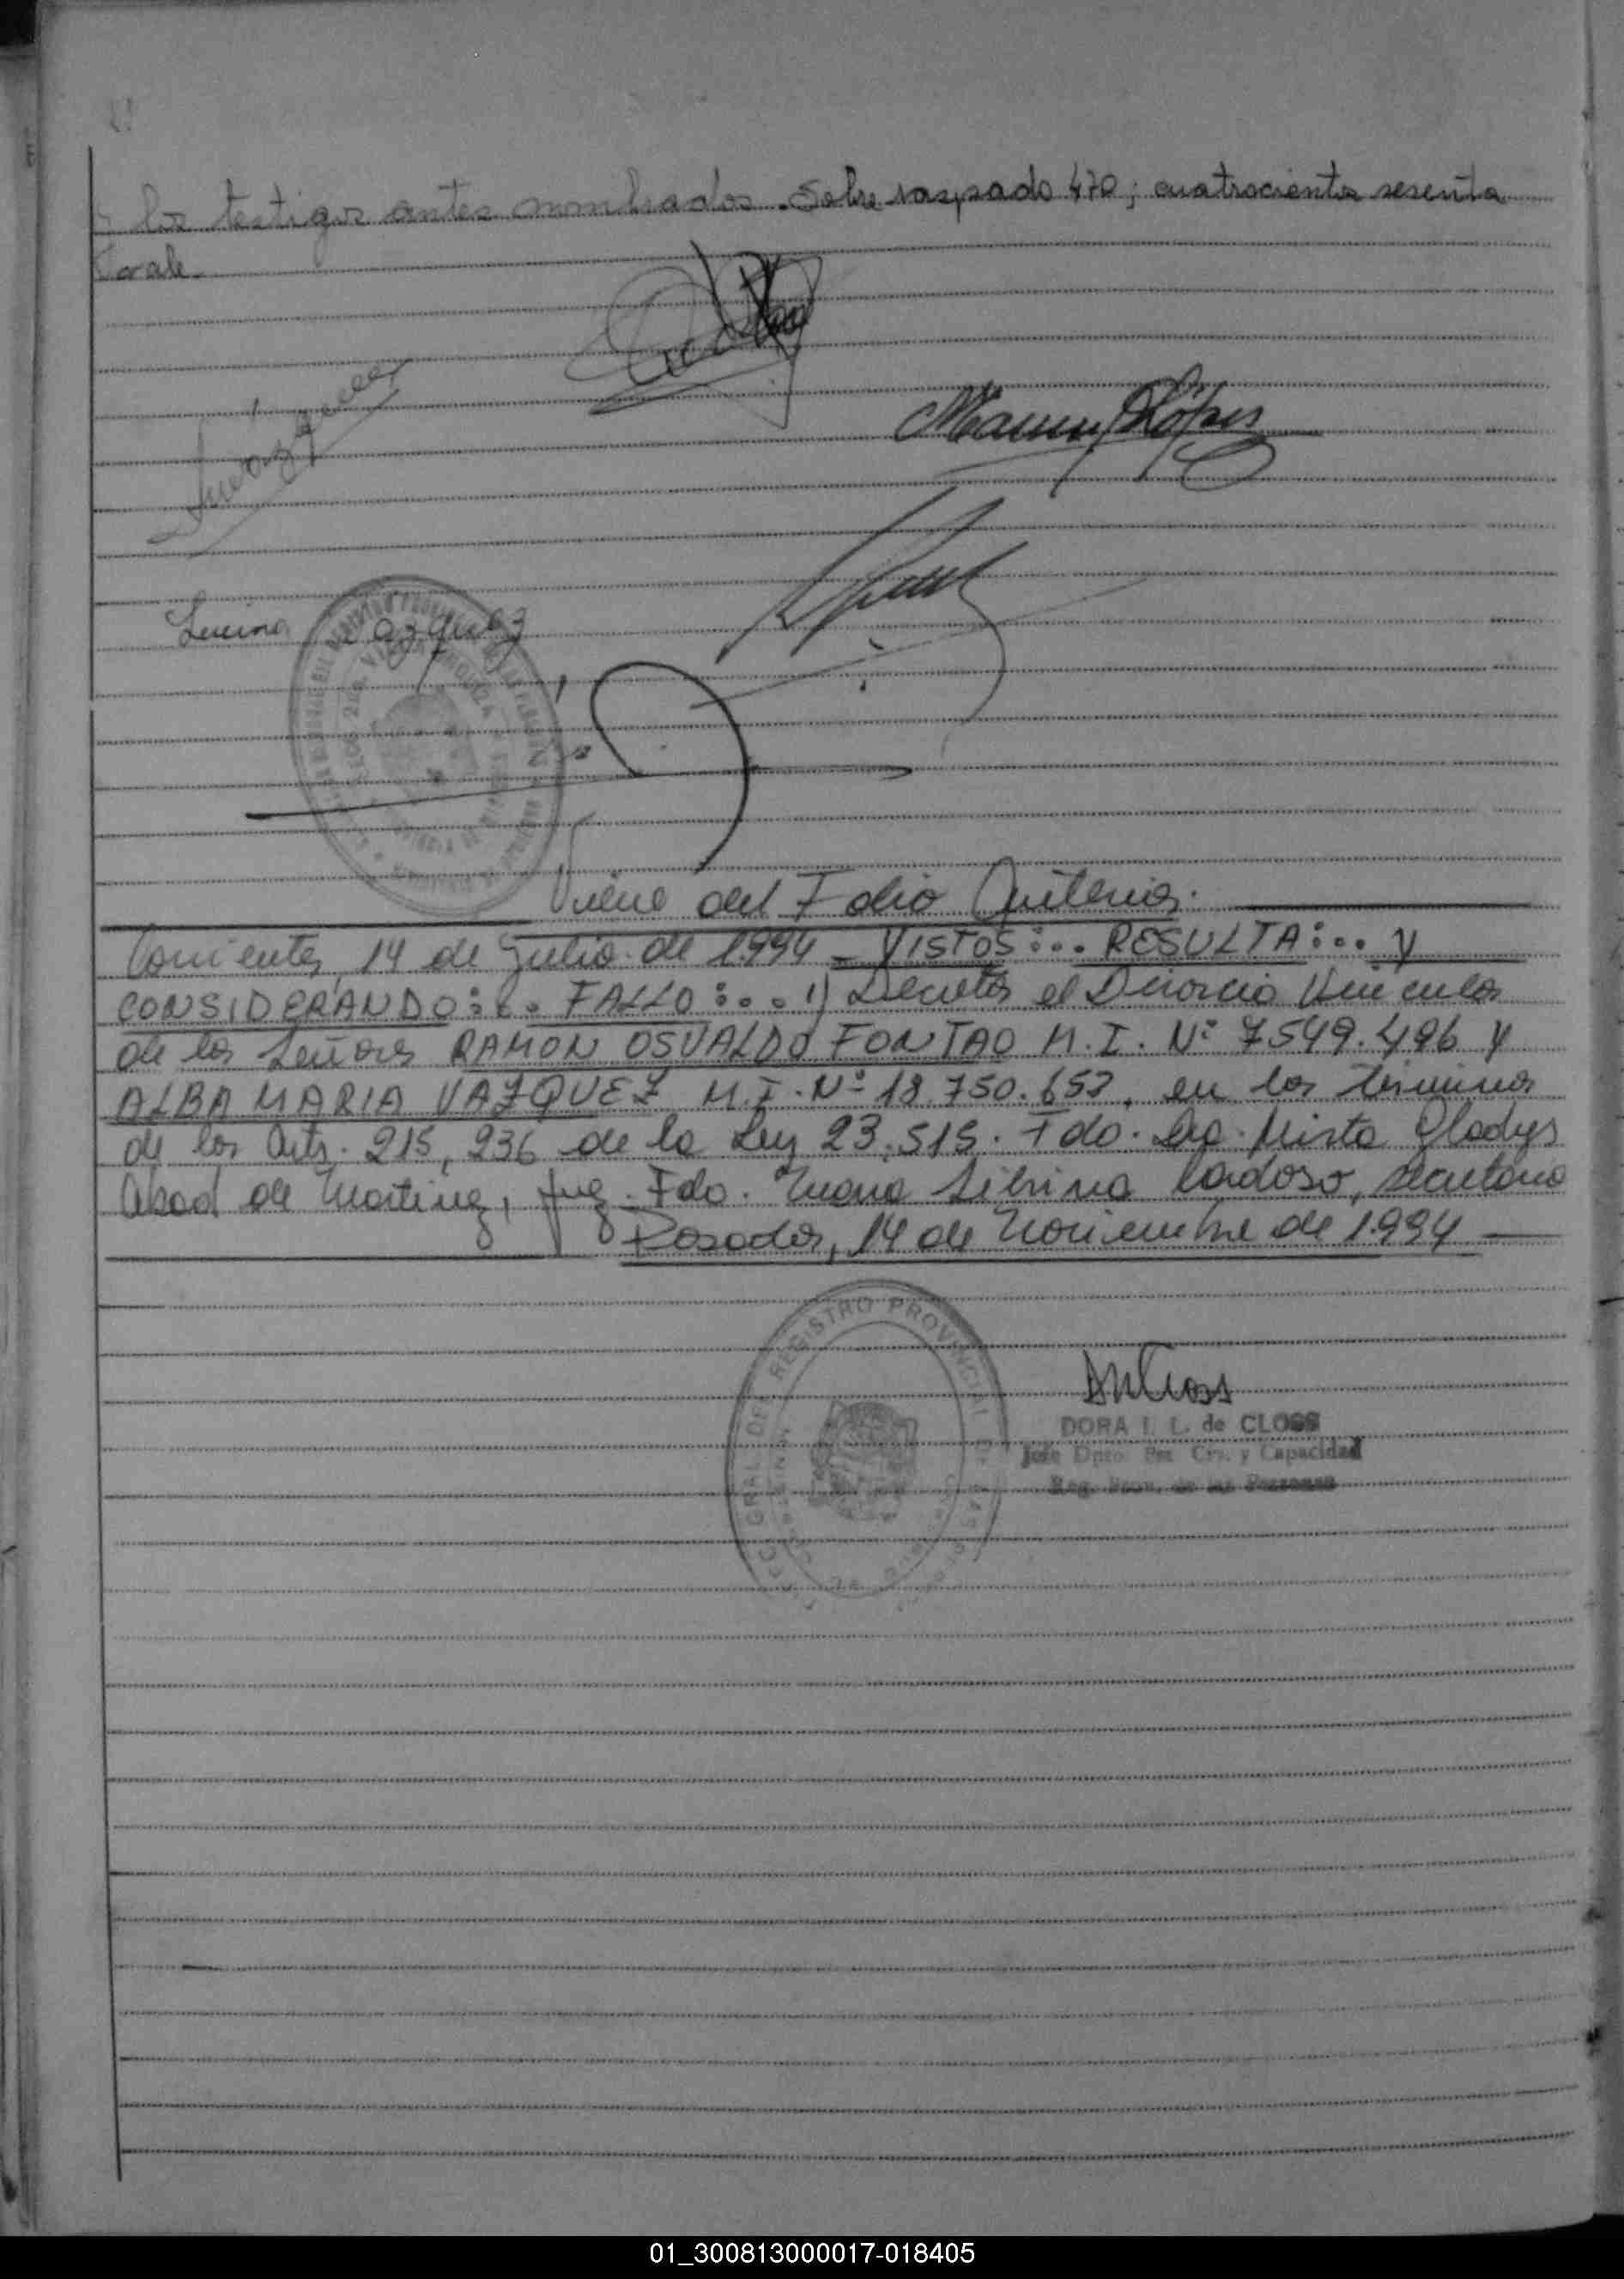 los testigos antes nombrados. Sobre raspado 470; cuatrocientos sesenta
vale.
Lucina Vazquez
Viene del Folio Anterior.
Corrientes, 14 de Julio de 1994 - VISTOS:.. RESULTA:.. y
CONSIDERANDO:.. FALLO:.. 1) Decretar el Divorcio Vincular
de los Señores RAMON OSVALDO FONTAO M.I. Nº 7.549.496 y
ALBA MARIA VAZQUEZ M.I. Nº 18.750.653, en los términos
de los Arts. 215, 236 de la Ley 23.515. Fdo. Dra. Mirta Gladys
Abad de Martinez, Juez. Fdo. Maria Silvina Cardoso, Secretaria
Posadas, 14 de Noviembre de 1994
REGISTRO PROVINCIAL
DORA I. L. de CLOSS
Jefe Dpto. Est. Civ. y Capacidad
Reg. Prov. de las Personas
01_300813000017-018405